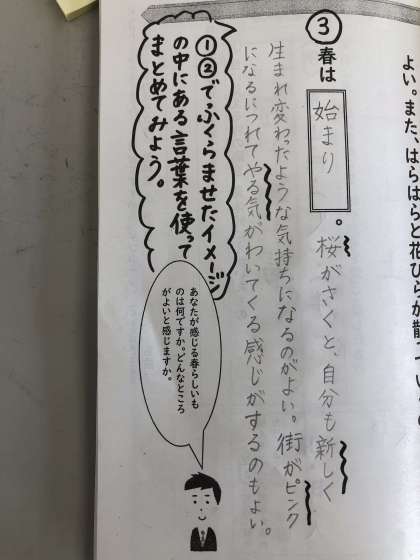 よい。また、はらはらと花びらが散って
③春は 始まり 。桜がさくと、自分も新しく
生まれ変わったような気持ちになるのがよい。街がピンク
になるにつれてやる気がわいてくる感じがするのもよい。
①②でふくらませたイメージ
の中にある言葉を使って
まとめてみよう。
あなたが感じる春らしいも
のは何ですか。どんなところ
がよいと感じますか。